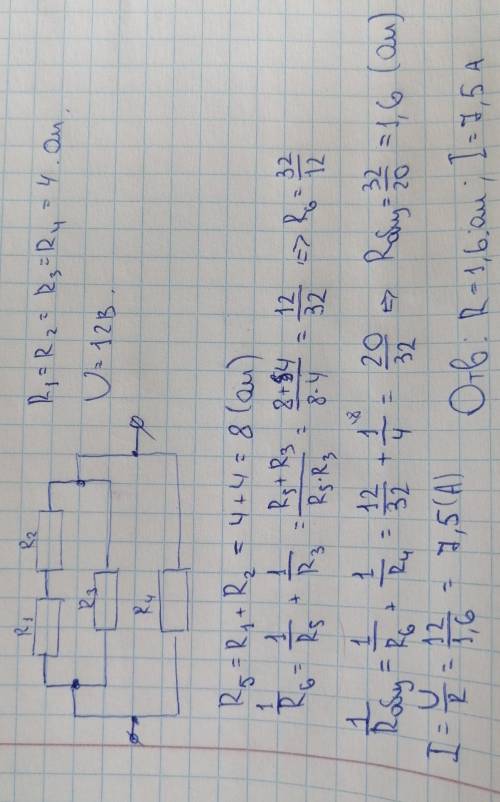 R₁ R₂
R₃
R₄
R₁ = R₂ = R₃ = R₄ = 4 ом.
U = 12 В.
R₅ = R₁ + R₂ = 4 + 4 = 8 (ом)
1/R₆ = 1/R₅ + 1/R₃ = (R₅ + R₃)/(R₅ · R₃) = (8 + 4)/(8 · 4) = 12/32 => R₆ = 32/12
1/Rобщ = 1/R₆ + 1/R₄ = 12/32 + 1/4 \8 = 20/32 => Rобщ = 32/20 = 1,6 (ом)
I = U/R = 12/1,6 = 7,5 (А)
Отв: R = 1,6 ом; I = 7,5 А